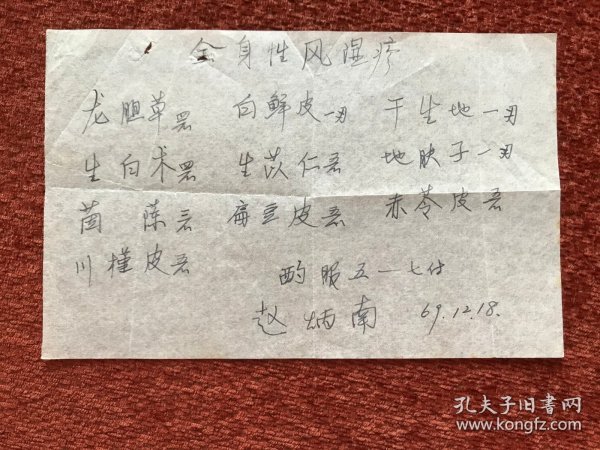 全身性风湿疹
龙胆草四钱 白鲜皮一两 干生地一两
生白术四钱 生苡仁五钱 地肤子一两
茵陈 扁豆皮五钱 赤苓皮五钱
川槿皮五钱 酌服五一七付
赵炳南 69.12.18.
孔夫子旧书网
www.kongfz.com